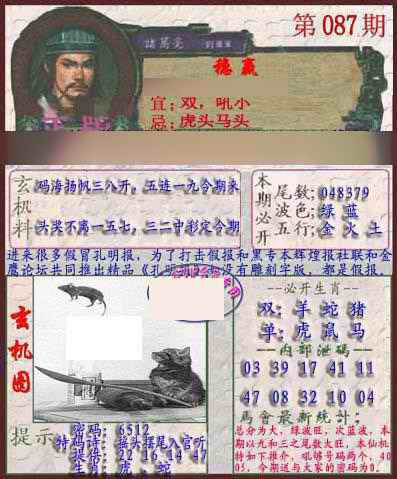 第087期
諸葛亮
稳赢
宜:双,吼小
忌:虎头马头
玄机料
码海扬帆三八开,五连一九今期来
头哭不离一五七,三二中彩定今期
本期必开
尾数:048379
波色:绿 蓝
五行:金 火 土
进来很多假冒孔明报,为了打击假报和黑专本辉煌报社联和金
鹰论坛共同推出精品《孔明报》
没有雕刻字版,都是假报.
玄机图
提示
密码:6512
特码诗:摇头摆尾入官听
提供:22 16 14 47
生肖:虎、蛇
必开生肖
双:羊 蛇 猪
单:虎 鼠 马
内部泄码
03 39 17 41 11
47 08 32 10 04
馬會最新統計:
总分为大,绿波旺,次蓝波,本
期以九和三之尾数大旺,本仙机
特如下推介,吼够号码两个,40
05,今期送与大家的密码为0.